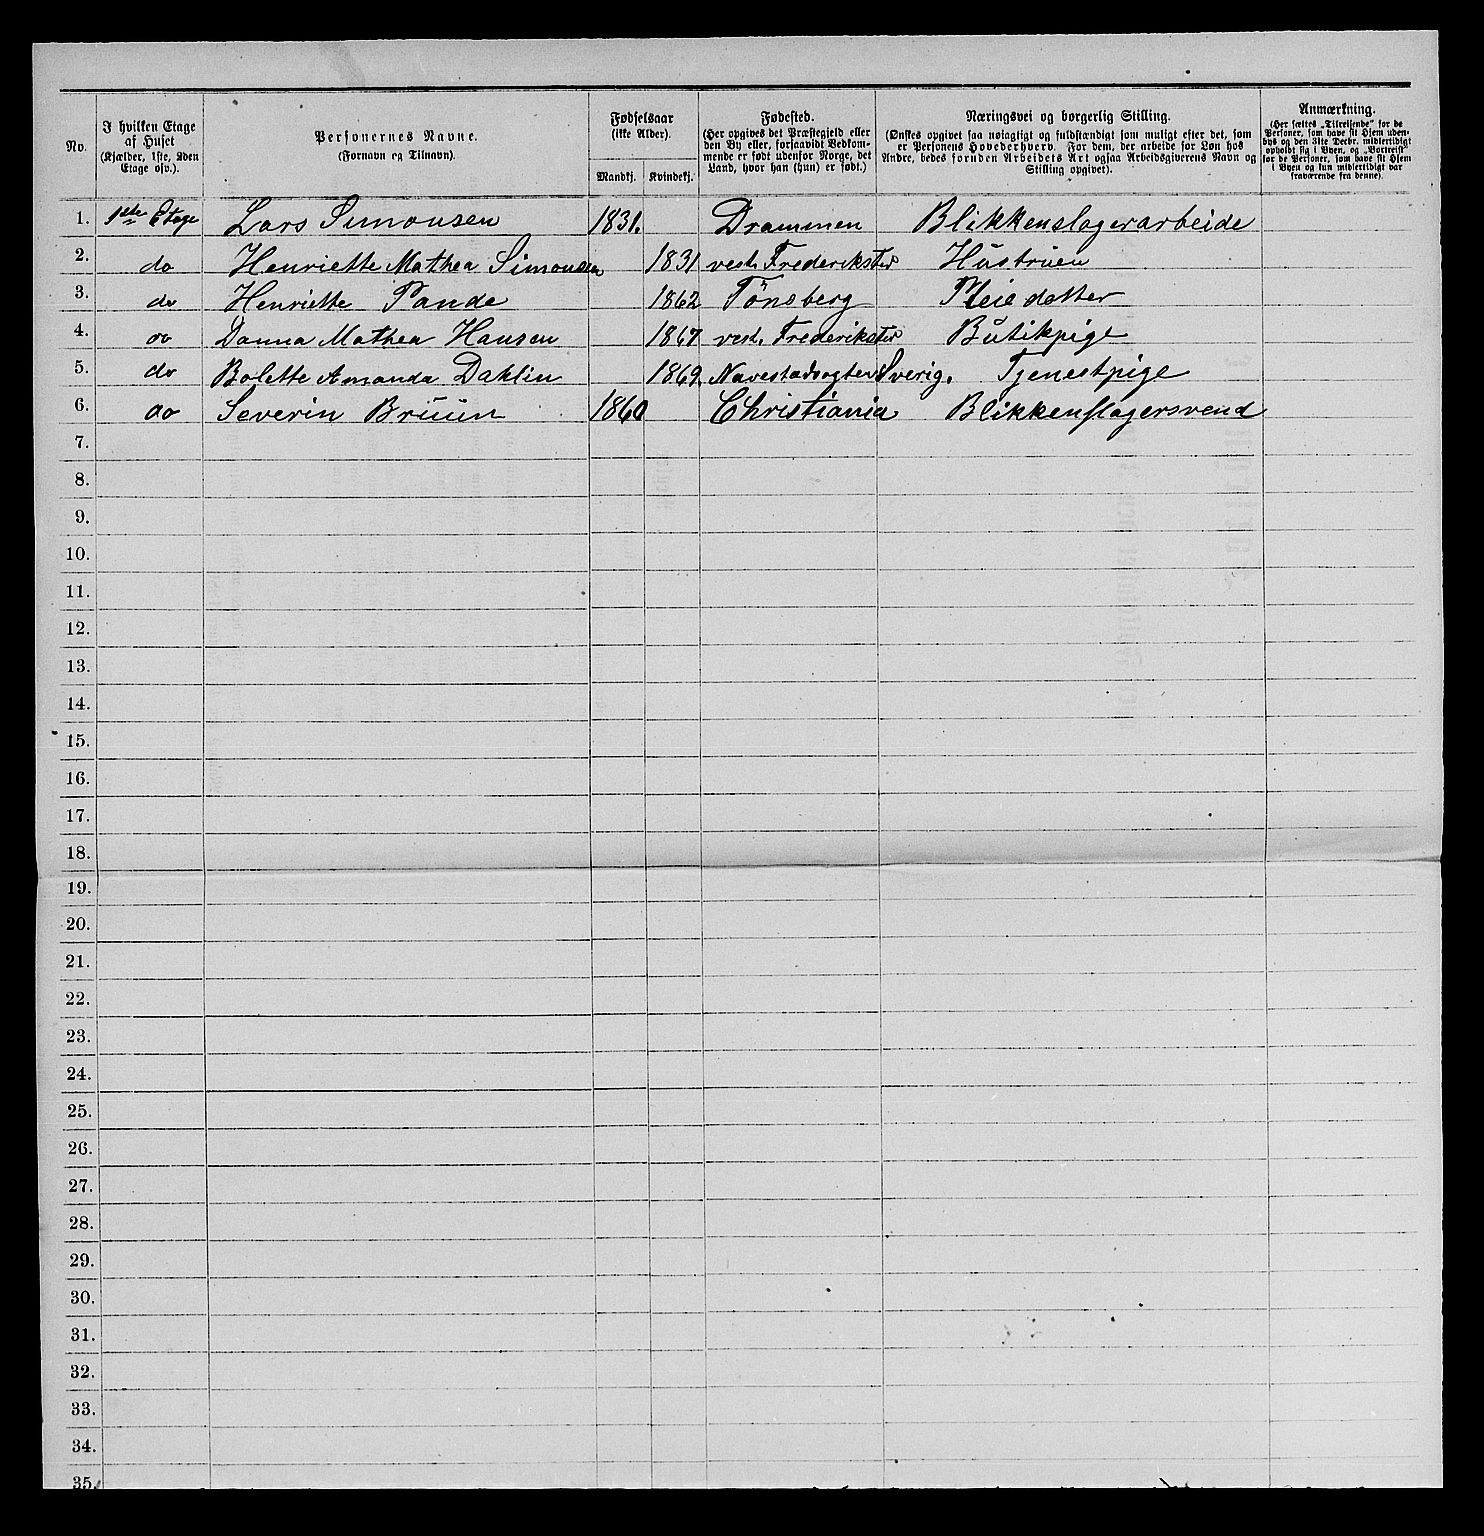 No.
I hvilken Etage
af Huset
(Kjælder, 1ste, 2den
Etage osv.).
Personernes Navne.
(Fornavn og Tilnavn).
Fødselsaar
(ikke Alder).
Mandkj. Kvindekj.
Fødested.
(Her opgives det Præstegjeld eller
den By eller, forsaavidt Vedkom-
mende er født udenfor Norge, det
Land, hvor han (hun) er født.)
Næringsvei og borgerlig Stilling.
(Ønskes opgivet saa nøiagtigt og fuldstændigt som muligt efter det, som
er Personens Hovederhverv. For dem, der arbeide for Løn hos
Andre, bedes foruden Arbeidets Art ogsaa Arbeidsgiverens Navn og
Stilling opgivet).
Anmærkning.
(Her sættes „Tilreisende" for de
Personer, som have sit Hjem uden-
bys og den 31te Decbr. midlertidigt
opholdt sig i Byen, og „Bortreist"
for de Personer, som have sit Hjem
i Byen og kun midlertidigt var
fraværende fra denne).
1. 1ste Etage Lars Simonsen 1831. Drammen Blikkenslagerarbeide
2. do Henriette Mathea Simonsen 1831 vest. Frederikstad Hustruen
3. do Henriette Pande 1862 Tönsberg Pleiedatter
4. do Danna Mathea Hansen 1867 vest. Frederikstad Butikpige
5. do Bolette Amanda Dahlin 1869 Sverig. Tjenestpige
6. do Severin Bruun 1860 Christiania Blikkenslagersvend
7.
8.
9.
10.
11.
12.
13.
14.
15.
16.
17.
18.
19.
20.
21.
22.
23.
24.
25.
26.
27.
28.
29.
30.
31.
32.
33.
34.
35.